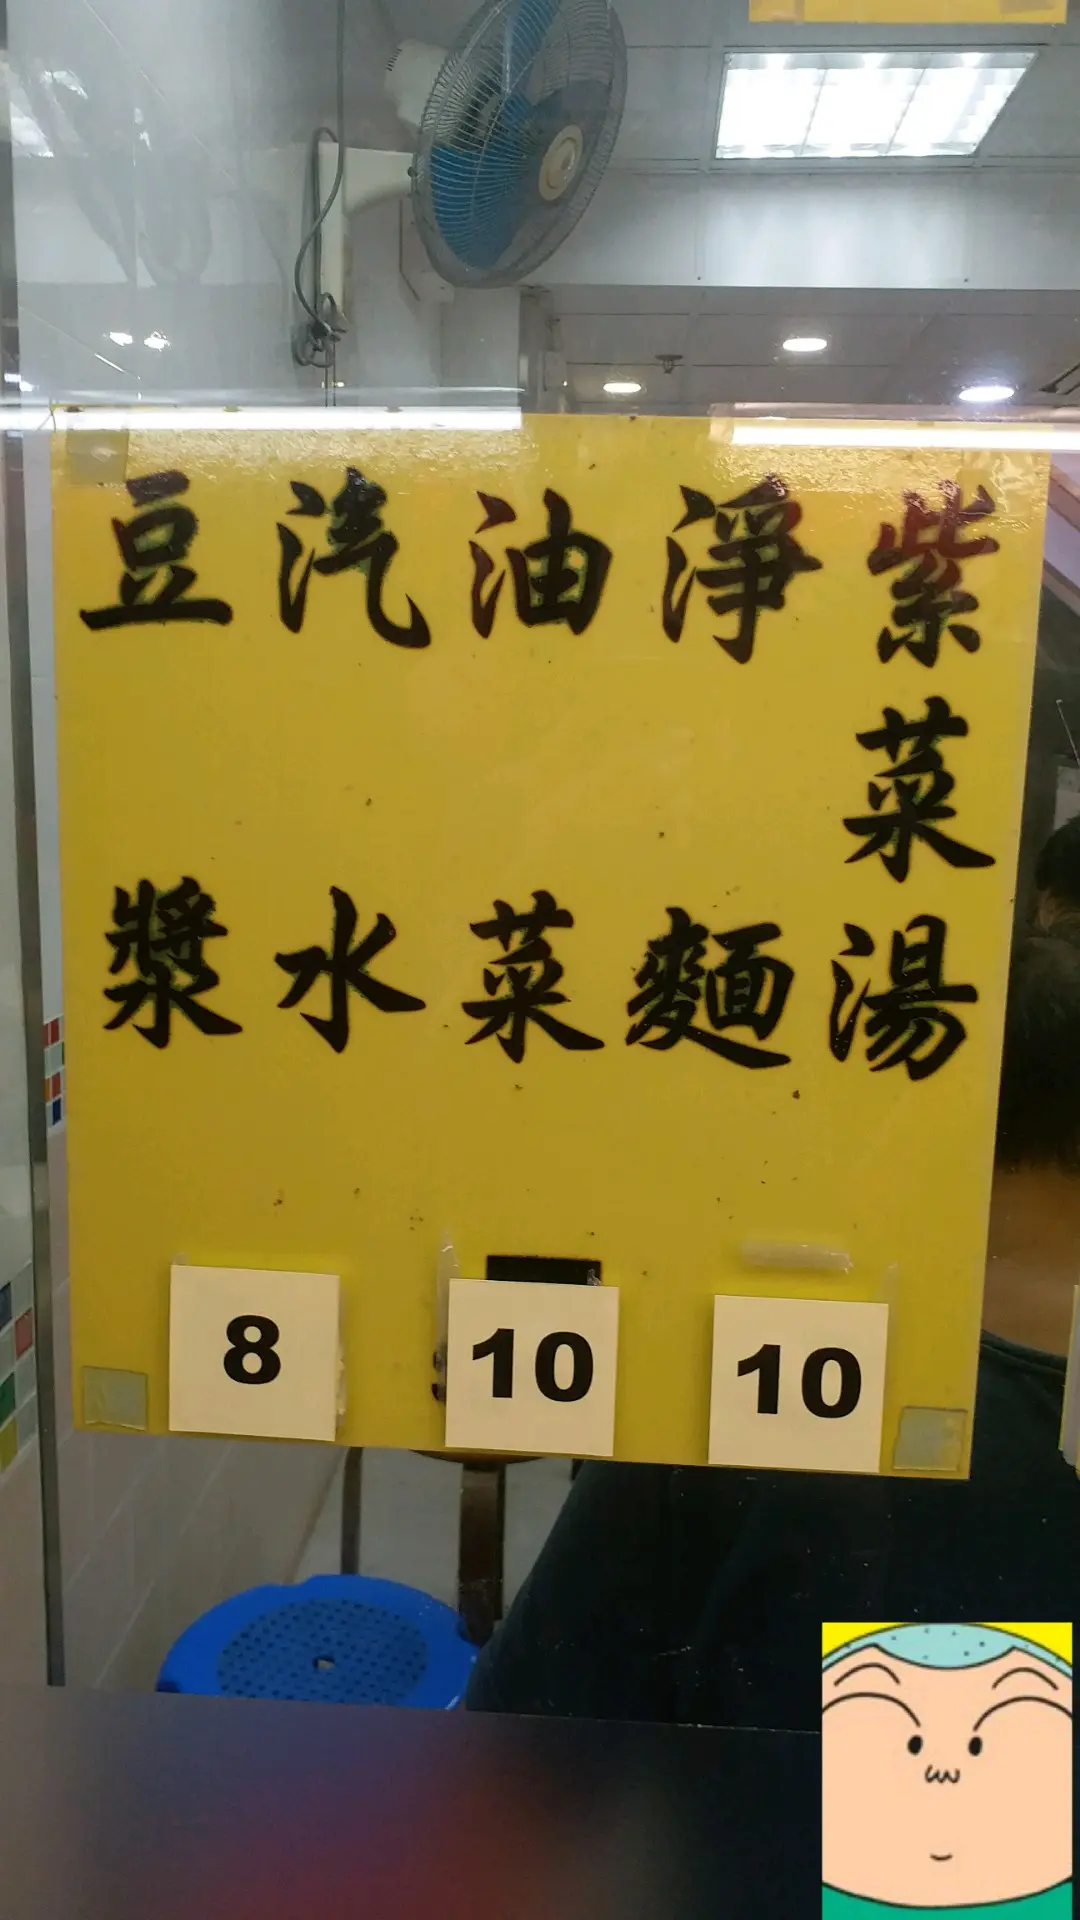 紫菜湯
淨麵
油菜
汽水
豆漿
8
10
10